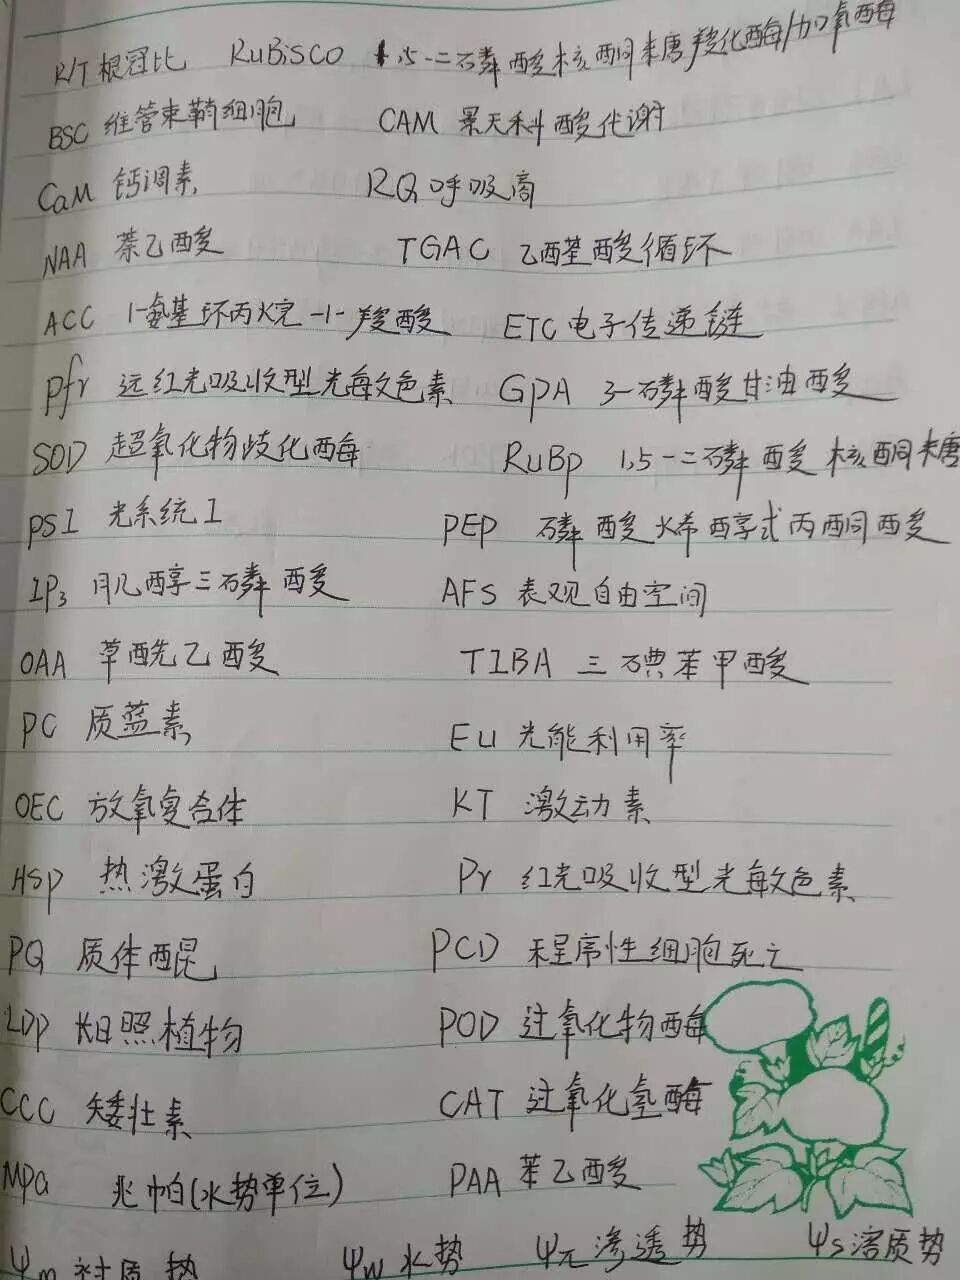 R/T 根冠比 RuBisCO 1,5-二磷酸核酮糖羧化酶/加氧酶
BSC 维管束鞘细胞 CAM 景天科酸代谢
CaM 钙调素 RQ 呼吸商
NAA 萘乙酸 TGAC 乙醛酸循环
ACC 1-氨基环丙烷-1-羧酸 ETC 电子传递链
Pfr 远红光吸收型光敏色素 GPA 3-磷酸甘油酸
SOD 超氧化物歧化酶 RuBp 1,5-二磷酸核酮糖
PSI 光系统I PEP 磷酸烯醇式丙酮酸
IP₃ 肌醇三磷酸 AFS 表观自由空间
OAA 草酰乙酸 TIBA 三碘苯甲酸
PC 质蓝素 Eu 光能利用率
OEC 放氧复合体 KT 激动素
HSP 热激蛋白 Pr 红光吸收型光敏色素
PQ 质体醌 PCD 程序性细胞死亡
LDP 长日照植物 POD 过氧化物酶
CCC 矮壮素 CAT 过氧化氢酶
MPa 兆帕(水势单位) PAA 苯乙酸
Ψm 衬质势 Ψw 水势 Ψπ 渗透势 Ψs 溶质势